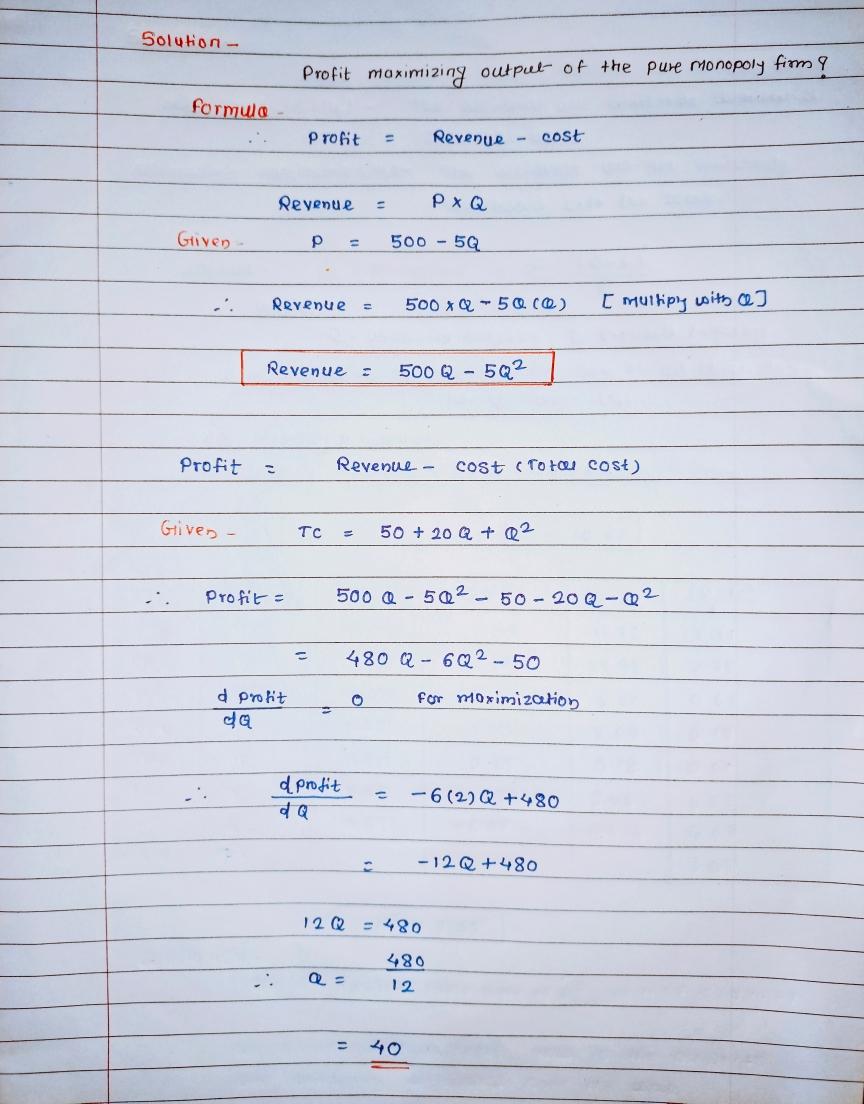 Solution -
Profit maximizing output of the pure monopoly firm ?
Formula -
∴ Profit = Revenue - cost
Revenue = P x Q
Given - P = 500 - 5Q
∴ Revenue = 500 x Q - 5Q (Q) [ multiply with Q ]
Revenue = 500 Q - 5Q²
Profit = Revenue - cost (Total cost)
Given - TC = 50 + 20 Q + Q²
∴ Profit = 500 Q - 5Q² - 50 - 20 Q - Q²
= 480 Q - 6Q² - 50
d profit / dQ = 0 for maximization
∴ d profit / dQ = -6(2) Q + 480
= -12 Q + 480
12 Q = 480
∴ Q = 480 / 12
= 40